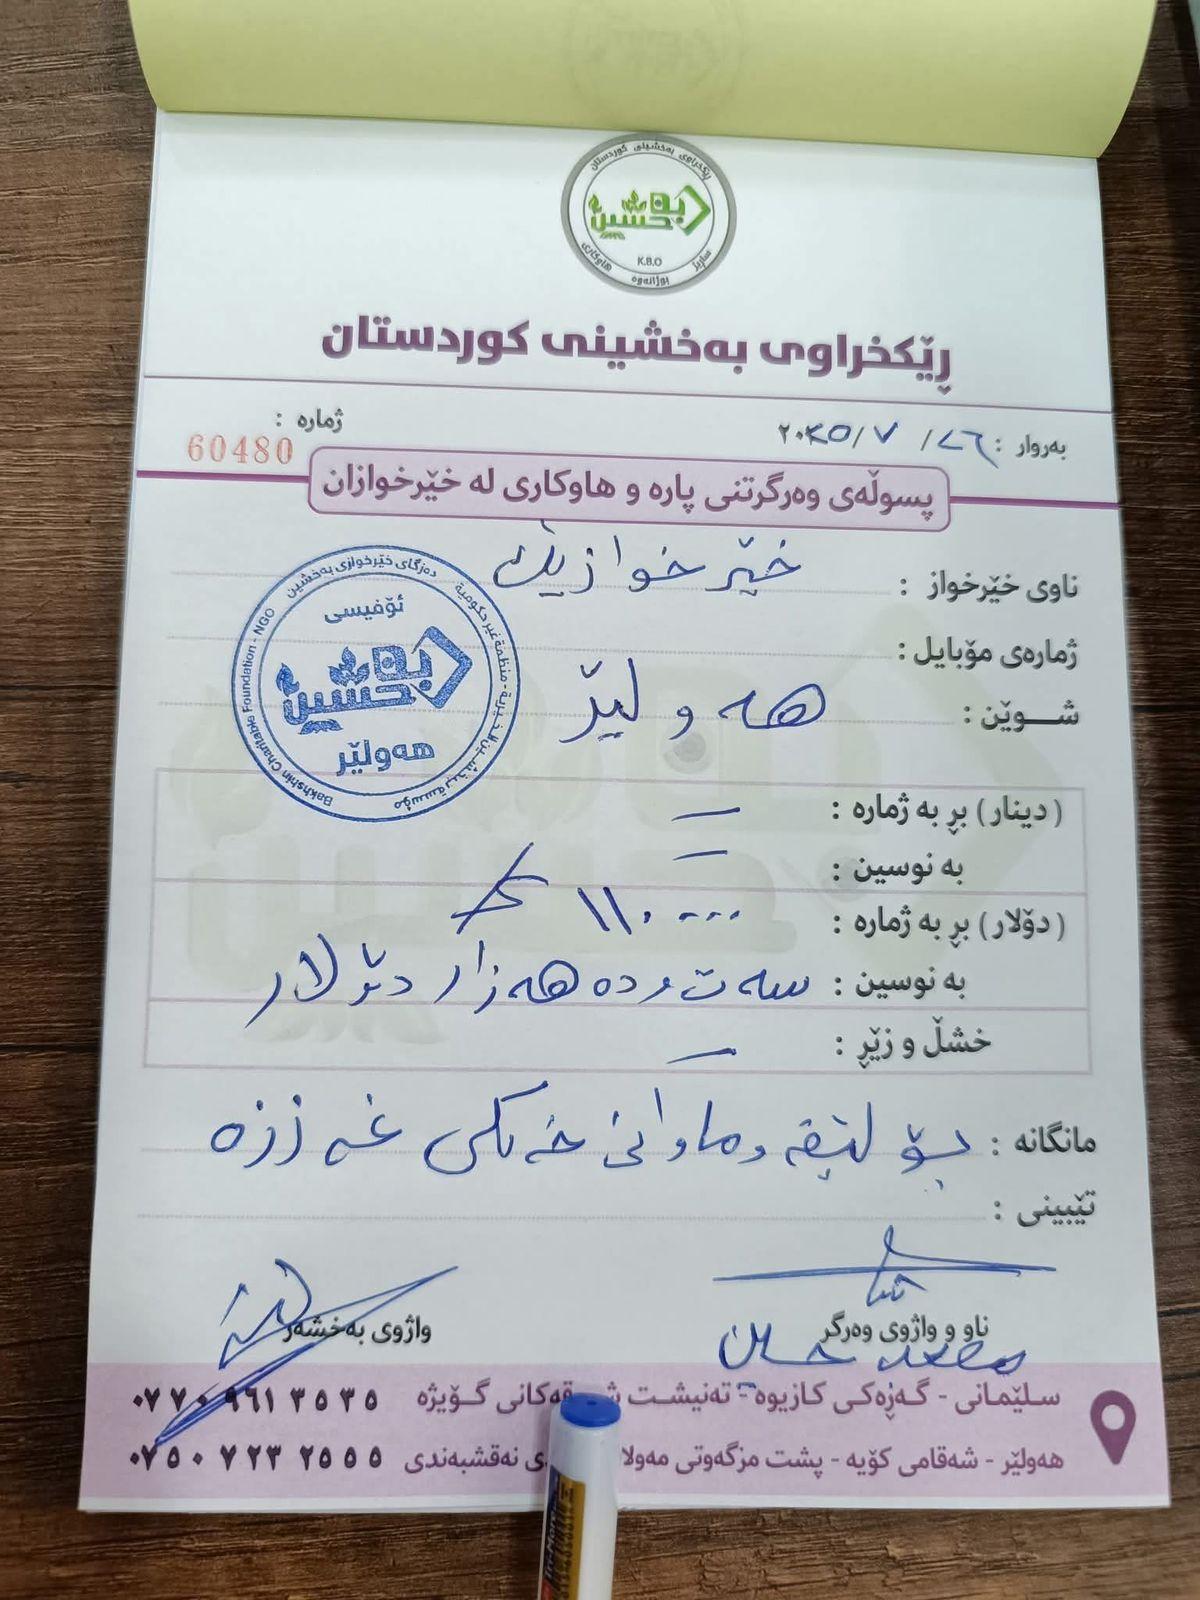 ڕێکخراوی بەخشینی کوردستان
بەخشین
K.B.O
سارێژ بوژانەوە هاوکاری
ڕێکخراوی بەخشینی کوردستان
بەروار : ٢٦/ ٧ /٢٠٢٥
ژمارە :
60480
پسوڵەی وەرگرتنی پارە و هاوکاری لە خێرخوازان
ناوی خێرخواز : خێرخوازێک
ژمارەی مۆبایل :
شـــوێن : هەولێر
دەزگای خێرخوازی بەخشین
ئۆفیسی
بەخشین
هەولێر
Bakhshin Charitable Foundation - NGO
مؤسسة بخشين الخيرية - منظمة غير حكومية
( دینار ) بڕ بە ژمارە : —
بە نوسین : —
( دۆلار ) بڕ بە ژمارە : ١١٠٠٠٠
بە نوسین : سەت و دە هەزار دۆلار
خشڵ و زێڕ : —
مانگانە : بۆ لێقەوماوانی خەلکی غەززە
تێبینی :
ناو و واژوی وەرگر
واژوی بەخشەر
سلێمانی - گەڕەکی کازیوە - تەنیشت شوقەکانی گۆیژە ٠٧٧٠ ٩٦١ ٣٥٣٥
هەولێر - شەقامی کۆیە - پشت مزگەوتی مەولا نەقشبەندی ٠٧٥٠ ٧٢٣ ٢٥٥٥